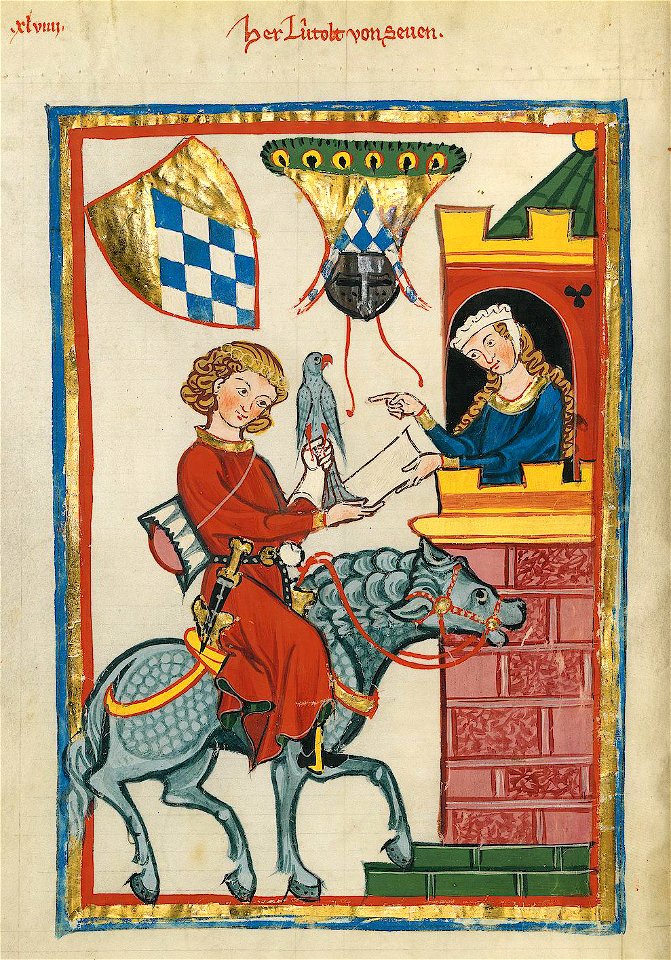 xlviiij.
Her Lůtolt von Seven.